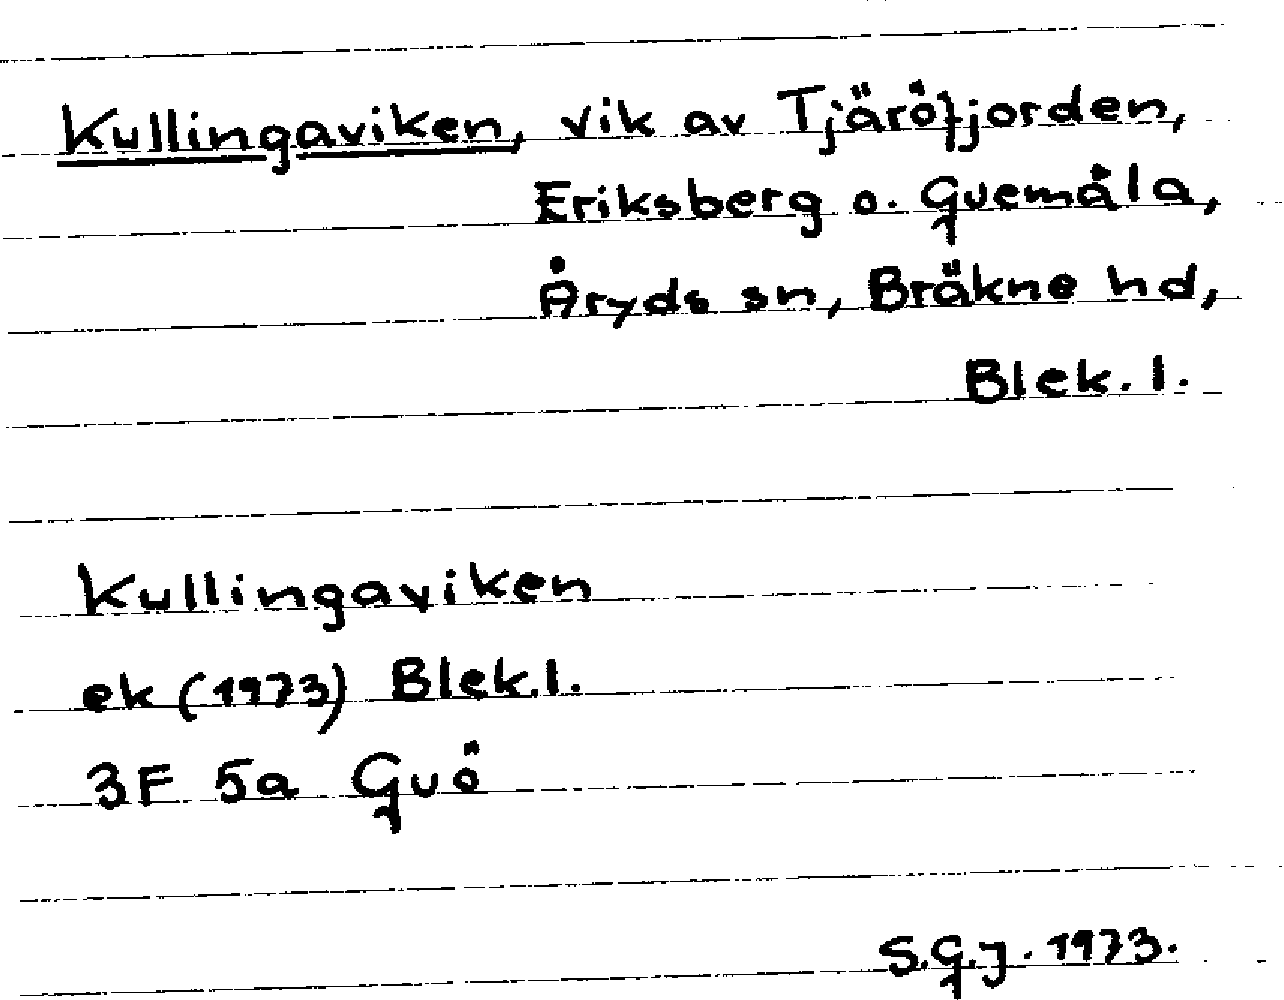 Kullingaviken, vik av Tjäröfjorden,
Eriksberg o. Guemåla,
Åryds sn, Bräkne hd,
Blek. l.
Kullingaviken
ek (1973) Blek.l.
3F 5a Guö
S.G.J. 1973.